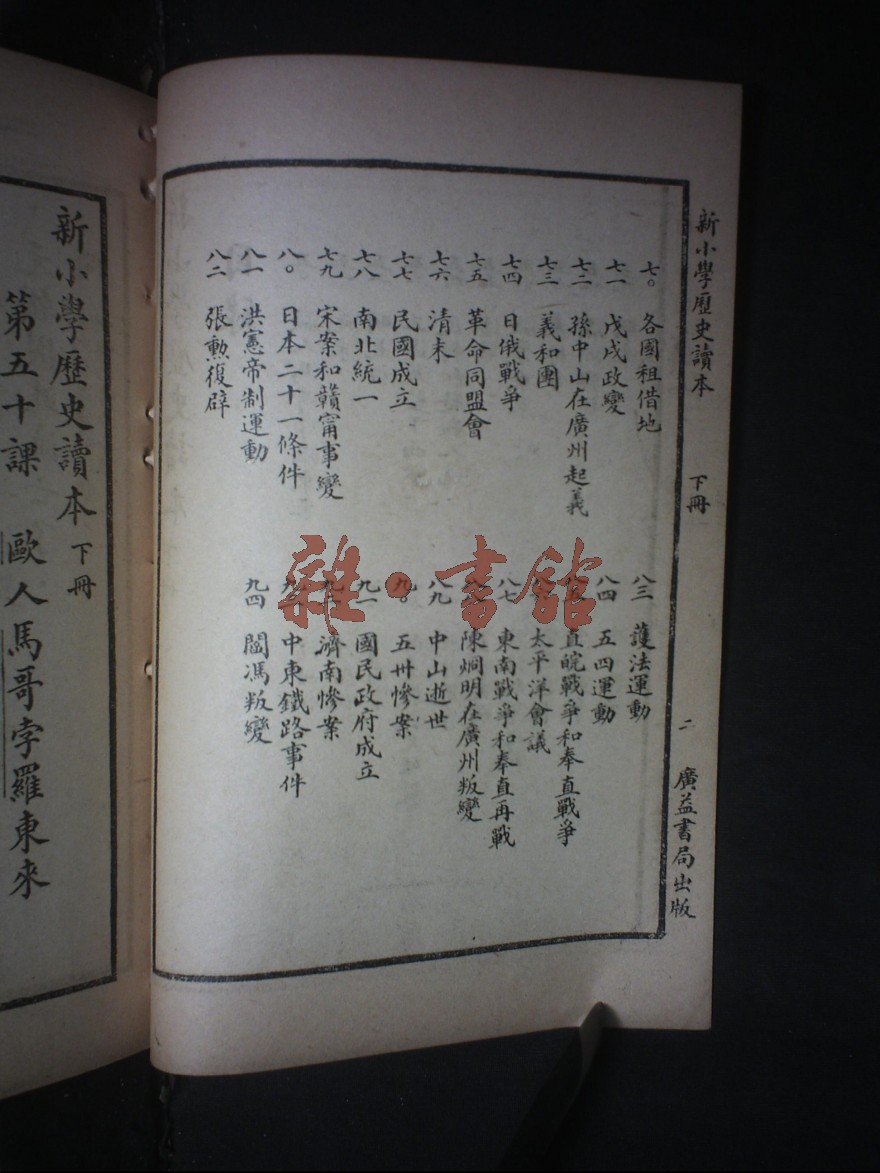 新小學歷史讀本
下冊
二
廣益書局出版
七〇 各國租借地
七一 戊戌政變
七二 孫中山在廣州起義
七三 義和團
七四 日俄戰爭
七五 革命同盟會
七六 清末
七七 民國成立
七八 南北統一
七九 宋案和贛甯事變
八〇 日本二十一條件
八一 洪憲帝制運動
八二 張勳復辟
八三 護法運動
八四 五四運動
八五 直皖戰爭和奉直戰爭
八六 太平洋會議
八七 東南戰爭和奉直再戰
八八 陳烱明在廣州叛變
八九 中山逝世
九〇 五卅慘案
九一 國民政府成立
九二 濟南慘案
九三 中東鐵路事件
九四 閻馮叛變
雜·書館
新小學歷史讀本 下冊
第五十課 歐人馬哥孛羅東來